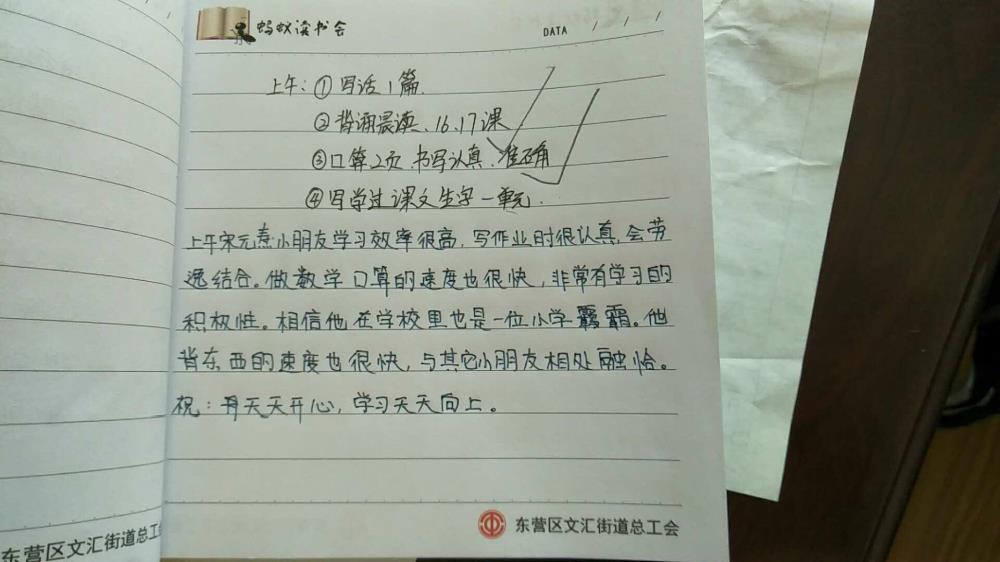 蚂蚁读书会
DATA / /
上午:①写话1篇.
②背诵晨读、16、17课
③口算2页.书写认真.准确
④写学过课文生字一单元.
上午宋元熹小朋友学习效率很高,写作业时很认真,会劳
逸结合。做数学口算的速度也很快,非常有学习的
积极性。相信他在学校里也是一位小学霸。他
背东西的速度也很快,与其它小朋友相处融恰。
祝:天天开心,学习天天向上。
东营区文汇街道总工会
东营区文汇街道总工会